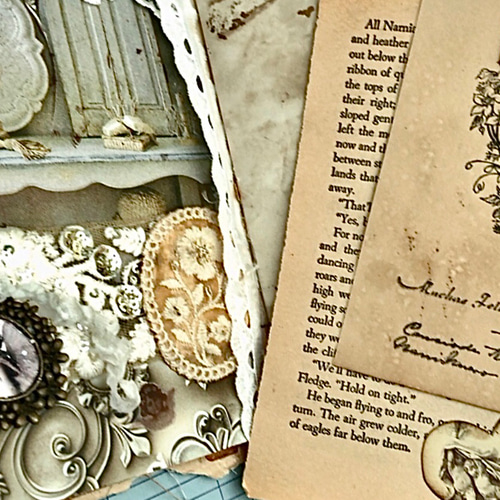 All Narnia
and heather
out below th
ribbon of q
the tops of
their right;
sloped gen
left the m
now and th
between st
lands that
away.
"That'
"Yes, 
For no
and the
dancing
roars and
high we
flying s
could o
they we
the cli
"We'll have to
Fledge. "Hold on tight."
He began flying to and fro,
turn. The air grew colder,
of eagles far below them.
Muchas